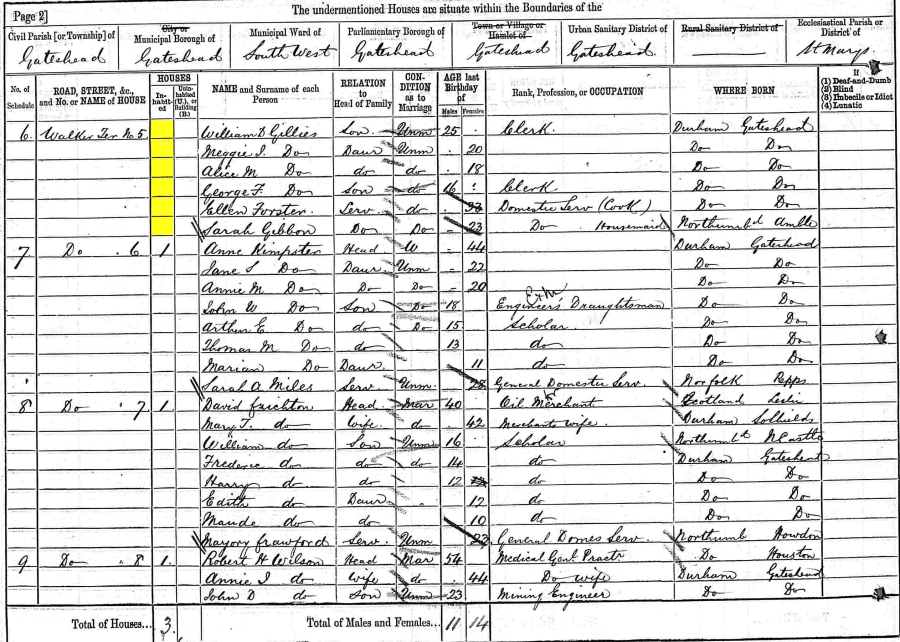 The undermentioned Houses are situate within the Boundaries of the
Page 2]
Civil Parish [or Township] of
Gateshead
City or
Municipal Borough of
Gateshead
Municipal Ward of
South West
Parliamentary Borough of
Gateshead
Town or Village or
Hamlet of
Gateshead
Urban Sanitary District of
Gateshead
Rural Sanitary District of
Ecclesiastical Parish or
District of
St Marys
No. of Schedule
ROAD, STREET, &c., and No. or NAME of HOUSE
HOUSES
In-habit-ed
Unin-habited (U.), or Building (B.)
NAME and Surname of each Person
RELATION to Head of Family
CON-DITION as to Marriage
AGE last Birthday of
Males
Females
Rank, Profession, or OCCUPATION
WHERE BORN
If
(1) Deaf-and-Dumb
(2) Blind
(3) Imbecile or Idiot
(4) Lunatic
6 Walker Ter No 5 William D Gillies Son Unm 25 Clerk Durham Gateshead
Meggie I. Do Daur Unm 20 Do Do
Alice M Do do do 18 Do Do
George F. Do Son do 16 Clerk Do Do
Ellen Forster Serv do Domestic Serv (Cook) Do Do
Sarah Gibbon Do Do 23 Do Housemaid Northumbd Amble
7 Do 6 1 Anne Kimpster Head W 44 Durham Gateshead
Jane S Do Daur Unm 22 Do Do
Annie M Do Do Do 20 Do Do
John W Do Son Do 18 Engineers Draughtsman Do Do
Arthur E Do do Do 15 Scholar Do Do
Thomas M Do do 13 do Do Do
Marian Do Daur 11 do Do Do
Sarah A Miles Serv Unm 28 General Domestic Serv. Norfolk Repps
8 Do 7 1 David Crichton Head Mar 40 Oil Merchant Scotland Leslie
Mary T. do Wife do 42 Merchants wife Durham SoShields
William do Son Unm 16 Scholar Northumbd NCastle
Frederic do do do 14 do Durham Gateshead
Harry do do 12 do Do Do
Edith do Daur 12 do Do Do
Maude do do 10 do Do Do
Mayory Crawford Serv Unm 23 General Domes Serv. Northumb Howdon
9 Do 8 1 Robert H Wilson Head Mar 54 Medical Genl Practr Do Houston
Annie I do Wife do 44 Do wife Durham Gateshead
John D do Son Unm 23 Mining Engineer Do Do
Total of Houses... 3 Total of Males and Females... 11 14